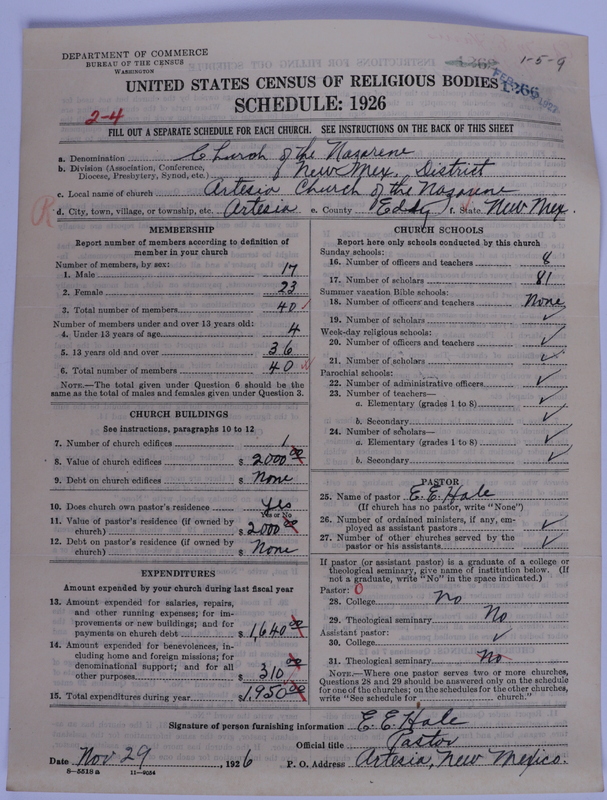 DEPARTMENT OF COMMERCE
BUREAU OF THE CENSUS
WASHINGTON
1262
1-5-9
UNITED STATES CENSUS OF RELIGIOUS BODIES
1266
SCHEDULE: 1926
2-4
FILL OUT A SEPARATE SCHEDULE FOR EACH CHURCH. SEE INSTRUCTIONS ON THE BACK OF THIS SHEET
a. Denomination Church of the Nazarene
b. Division (Association, Conference, Diocese, Presbytery, Synod, etc.) New Mex. District
c. Local name of church Artesia Church of the Nazarene
d. City, town, village, or township, etc. Artesia e. County Eddy f. State New Mex.
MEMBERSHIP
Report number of members according to definition of member in your church
Number of members, by sex:
1. Male 17
2. Female 23
3. Total number of members 40
Number of members under and over 13 years old:
4. Under 13 years of age 4
5. 13 years old and over 36
6. Total number of members 40
NOTE.—The total given under Question 6 should be the same as the total of males and females given under Question 3.
CHURCH BUILDINGS
See instructions, paragraphs 10 to 12
7. Number of church edifices 1
8. Value of church edifices $ 2000 00
9. Debt on church edifices $ None
10. Does church own pastor's residence Yes
Yes or No
11. Value of pastor's residence (if owned by church) $ 2000 00
12. Debt on pastor's residence (if owned by church) $ None
EXPENDITURES
Amount expended by your church during last fiscal year
13. Amount expended for salaries, repairs, and other running expenses; for improvements or new buildings; and for payments on church debt $ 1,640 00
14. Amount expended for benevolences, including home and foreign missions; for denominational support; and for all other purposes $ 310 00
15. Total expenditures during year $ 1,950 00
CHURCH SCHOOLS
Report here only schools conducted by this church
Sunday schools:
16. Number of officers and teachers 8
17. Number of scholars 81
Summer vacation Bible schools:
18. Number of officers and teachers None
19. Number of scholars ✓
Week-day religious schools:
20. Number of officers and teachers ✓
21. Number of scholars ✓
Parochial schools:
22. Number of administrative officers ✓
23. Number of teachers—
a. Elementary (grades 1 to 8) ✓
b. Secondary ✓
24. Number of scholars—
a. Elementary (grades 1 to 8) ✓
b. Secondary ✓
PASTOR
25. Name of pastor E. E. Hale
(If church has no pastor, write "None")
26. Number of ordained ministers, if any, employed as assistant pastors ✓
27. Number of other churches served by the pastor or his assistants ✓
If pastor (or assistant pastor) is a graduate of a college or theological seminary, give name of institution below. (If not a graduate, write "No" in the space indicated.)
Pastor: 0
28. College No
29. Theological seminary No
Assistant pastor:
30. College ✓
31. Theological seminary No
NOTE.—Where one pastor serves two or more churches, Questions 28 and 29 should be answered only on the schedule for one of the churches; on the schedules for the other churches, write "See schedule for church."
Signature of person furnishing information E. E. Hale
Official title Pastor
Date Nov 29, 1926 P. O. Address Artesia, New Mexico.
8—5518 a 11—9054